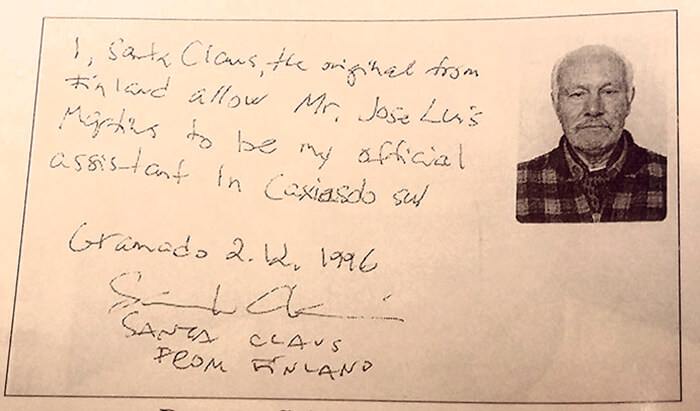 I, Santa Claus, the original from
Finland allow Mr. Jose Luis
Martins to be my official
assistant in Caxiasdo sul
Gramado 2.12. 1996
SANTA CLAUS
FROM FINLAND